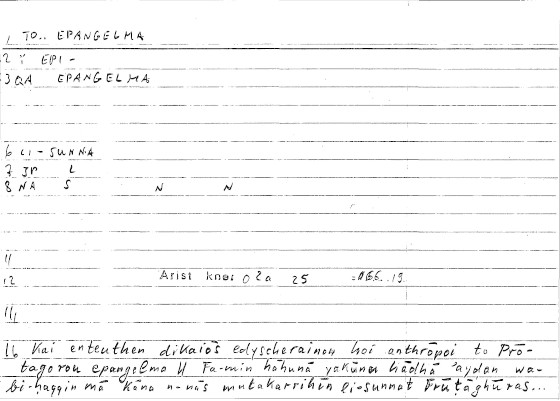 1 TO.. EPANGELMA
2 Y EPI-
3 QA EPANGELMA
6 LI-SUNNA
7 IP L
8 NA S N N
11
12 Arist 02a 25 19
16 Kai enteuthen dikaiōs edyscherainon hoi anthrōpoi to Prō-
tagorou epangelma // Fa-min hāhunā yakūnu hādhā 'ayḍan wa-
bi-ḥaqqin mā kāna n-nās mutakarrihīn li-sunnat Frūṭāghūras...